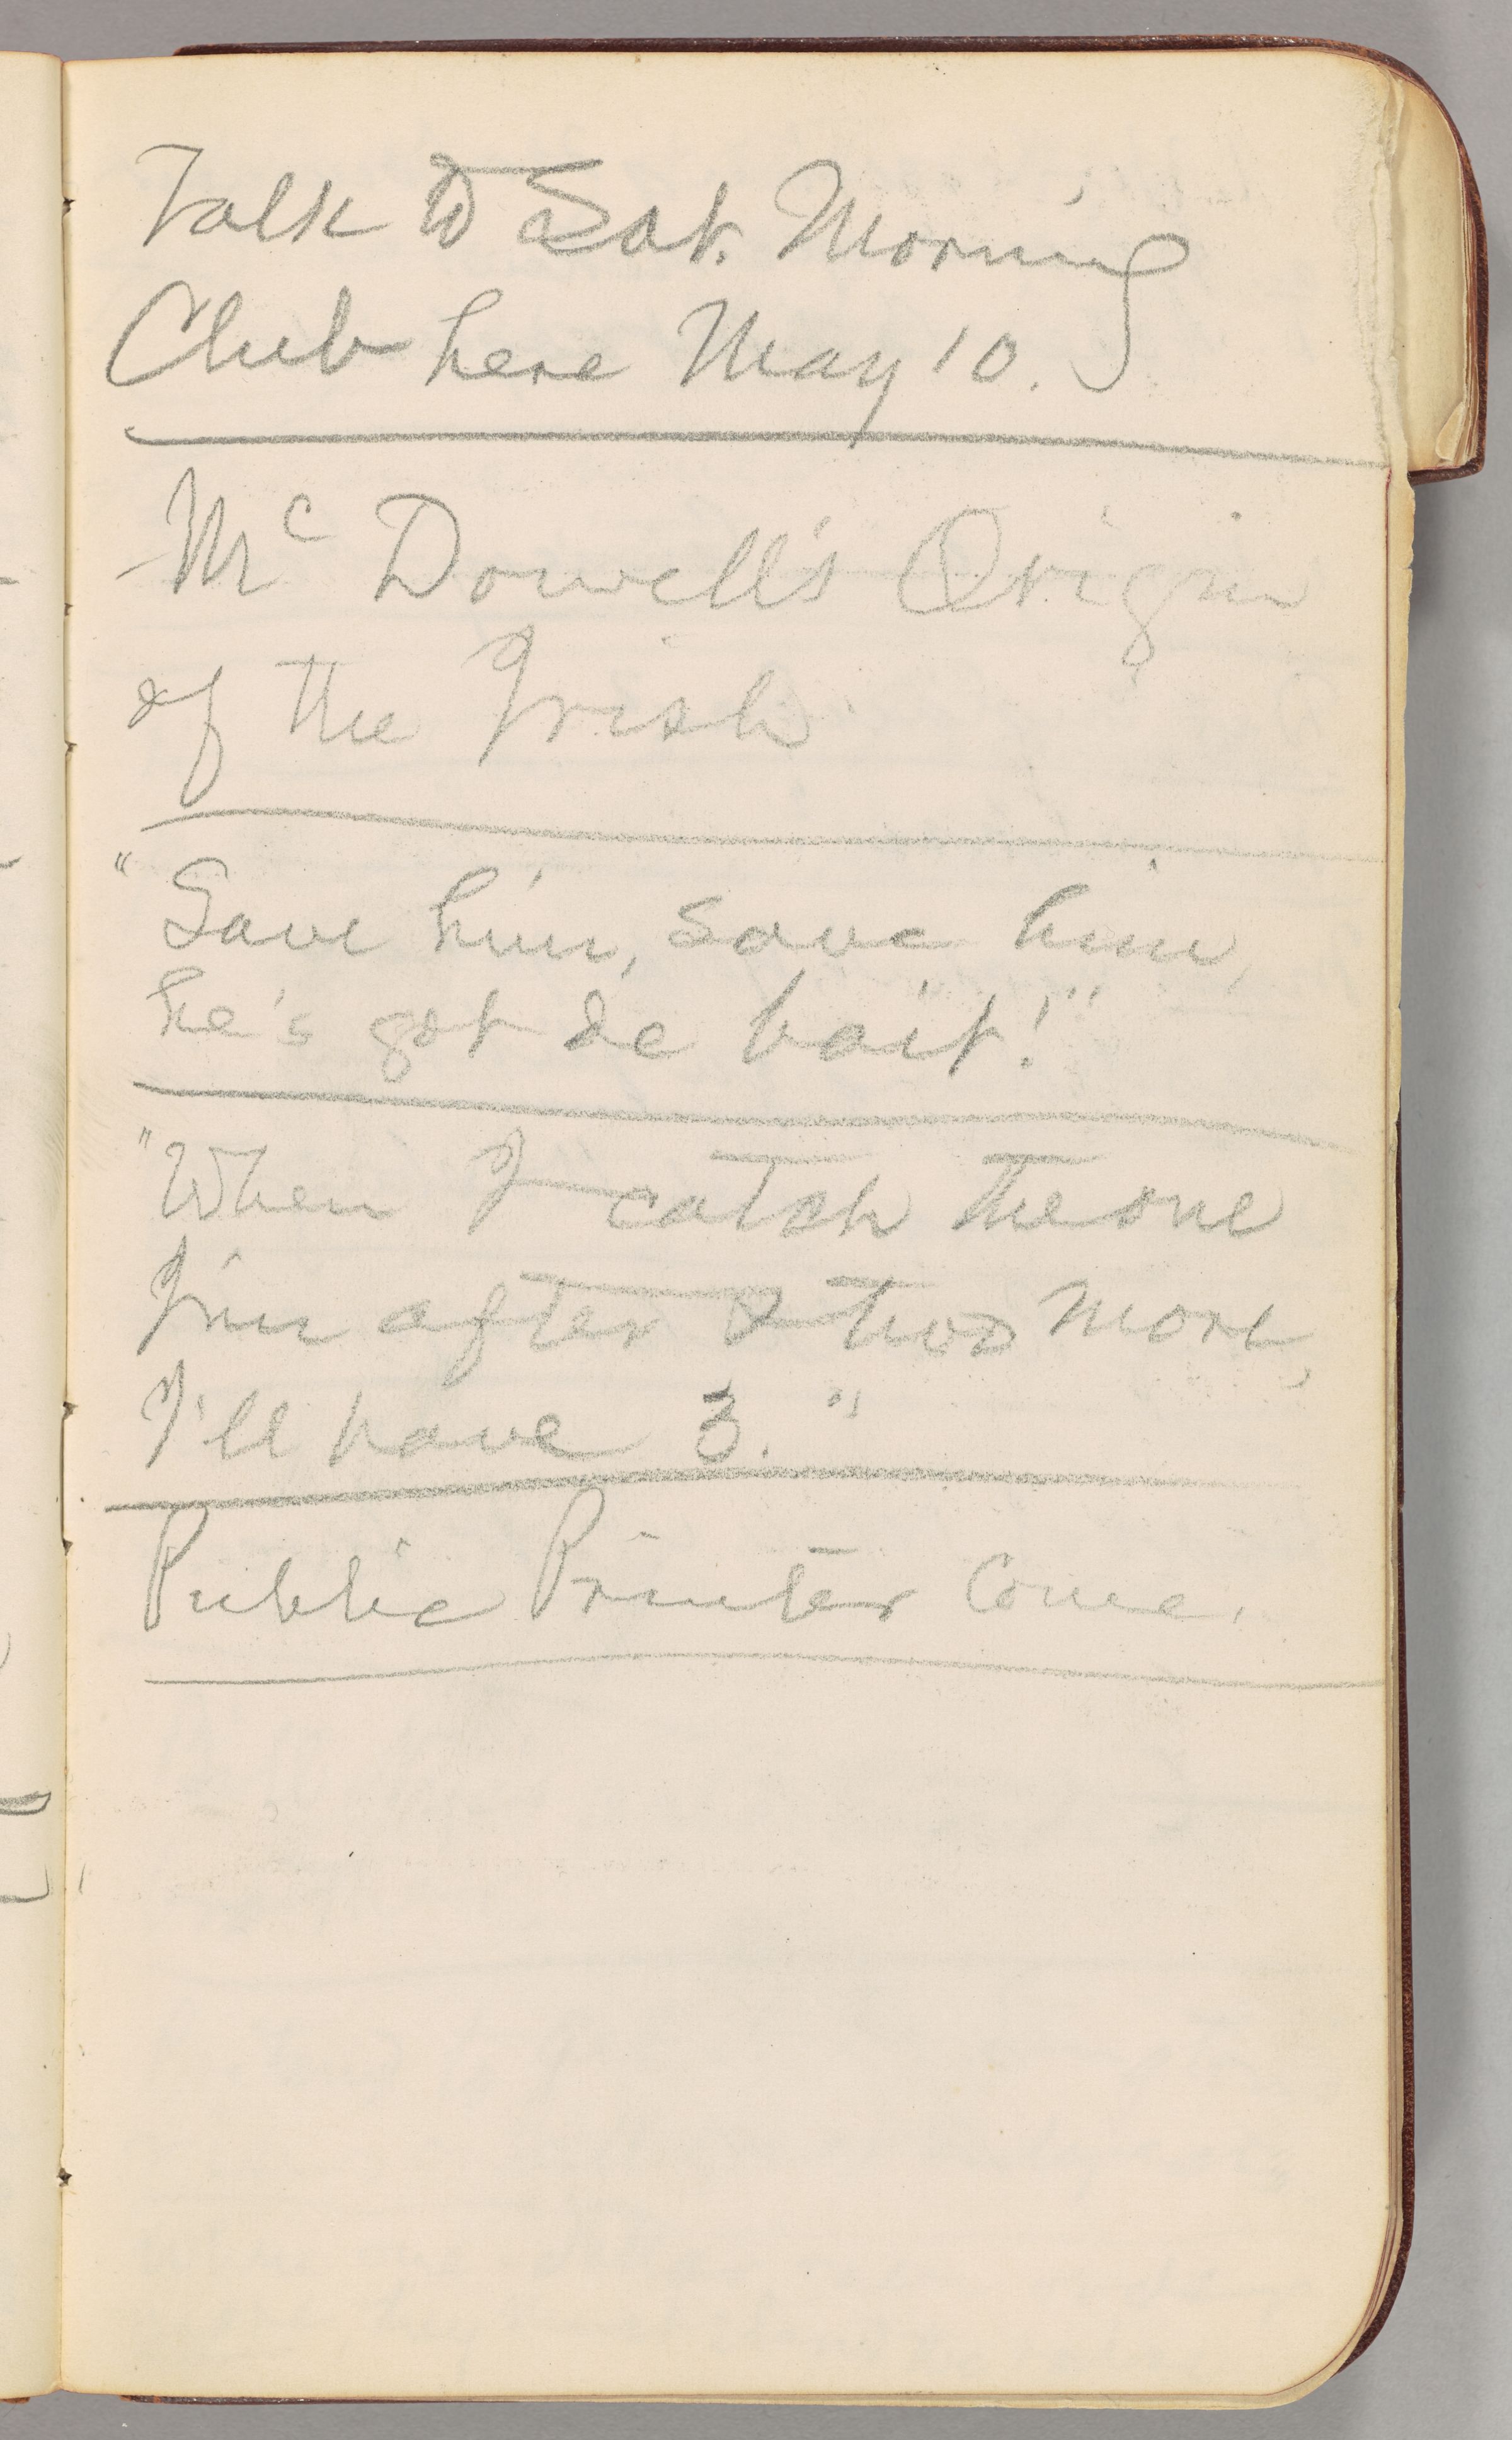 Talk to Sat. Morning
Club here May 10.
Mc Dowell's Origin
of the Irish
"Save him, save him,
he's got de bait!"
"When I catch the one
I'm after & two more,
I'll have 3."
Public Printer Come.